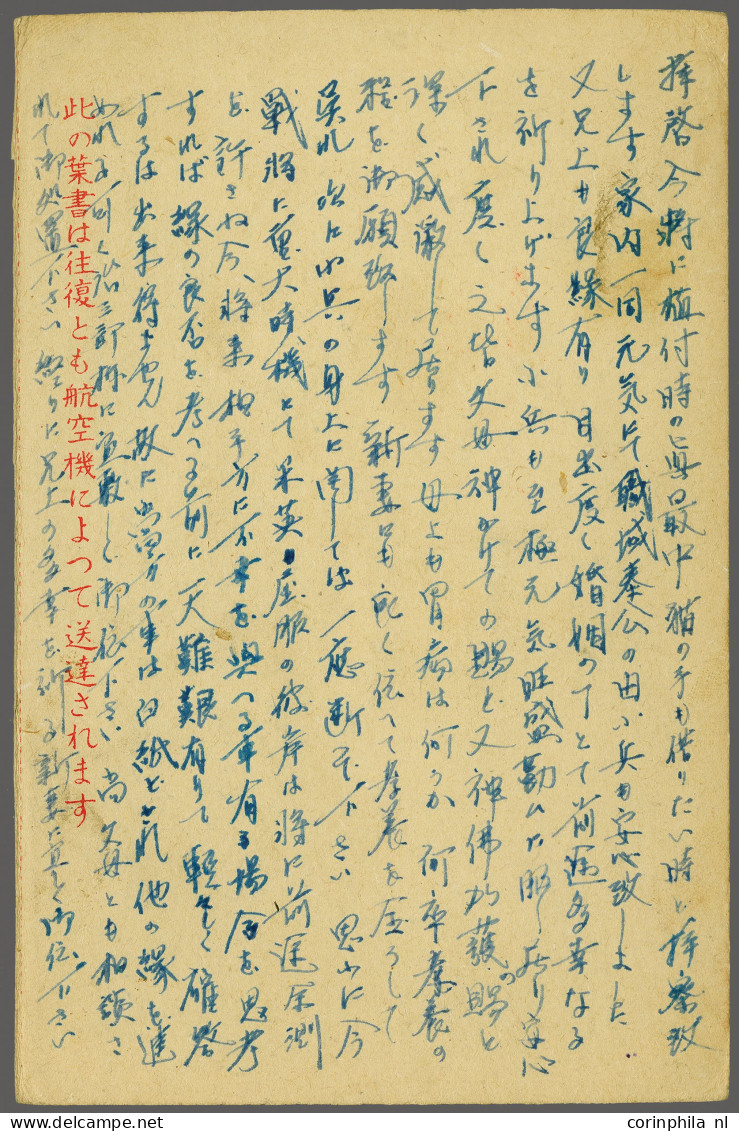 拝啓 今将に植付時の真最中猫の手も借りたい時と拝察致
します 家内一同元気にて職域奉公の由小兵も安心致しました
又兄上も良縁有り目出度く婚姻の とて前途多幸なる
を祈り上げます 小兵も至極元気旺盛勤ムに服し居り安心
下され度く之皆父母神かけての賜と又神佛加護の賜と
深く感激して居ります 母上も胃病は何うか何卒孝養の
程を御願致します 新妻にも宜く伝へて孝養を尽して
呉れ 次に小兵の身上に関しては一応断って下さい 思ふに今
戦将に重大時機にて米英屈服の彼岸は将に前途不測
を許さね今、将来相手方に不幸を与へる事有る場合を思考
すれば縁の良否を考へる前に一大難艱有りて軽々しく確答
するは出来得ません 故に 事は白紙とされ他の縁を進
められる 宜敷しく御伝下さい 尚父母とも相談さ
此の葉書は往復とも航空機によつて送達されます
れて御処置下さい 終りに兄上の多幸を祈る 新妻に宜しく御伝へ下さい
corinphila nl